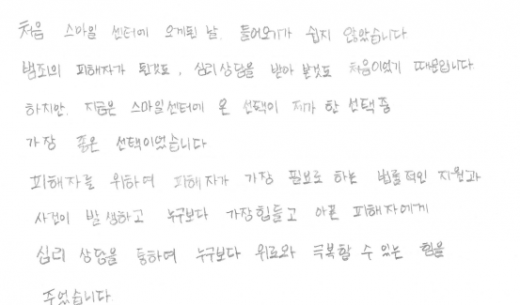 처음 스마일 센터에 오게된 날, 들어오기가 쉽지 않았습니다
범죄의 피해자가 된것도, 심리상담을 받아 본것도 처음이었기 때문입니다
하지만, 지금은 스마일센터에 온 선택이 제가 한 선택중
가장 좋은 선택이었습니다
피해자를 위하여 피해자가 가장 필요로 하는 법률적인 지원과
사건이 발생하고 누구보다 가장힘들고 아픈 피해자에게
심리 상담을 통하여 누구보다 위로와 극복할 수 있는 힘을
주었습니다.